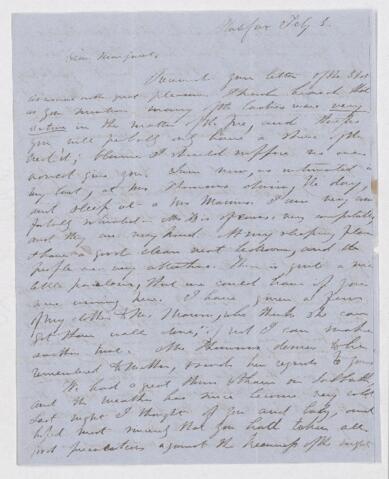 Halifax Feby 3.
Dear Margaret,
Received your letter of the 31st
with great pleasure. I
as you mention many of the ladies were very
active in the matter of the fire, and that
you will probably have a share of the
I should suppose no one
would give you. I am now, as intimated in
my last, at Mrs Thomsons during the day,
and sleep at Mrs Manns. I am very com-
fortably situated. Mrs D is of course very
and they are very kind. At my sleeping place
I have a good clean neat bedroom, and the
people are very attentive. There is quite a nice
little parlour, that we could have if you
were coming here. I have given a few
of my clothes to Mrs Mann, who thinks she can
get them well done, but I can make
another trial. Mrs Thomson desires to be
remembered to Mother, sends her regards to you
We had a great thaw & rain on Sabbath
and the weather has since become very cold
Last night I thought of you and baby, and
hoped most sincerely that you had taken all
precautions against the keenness of the night